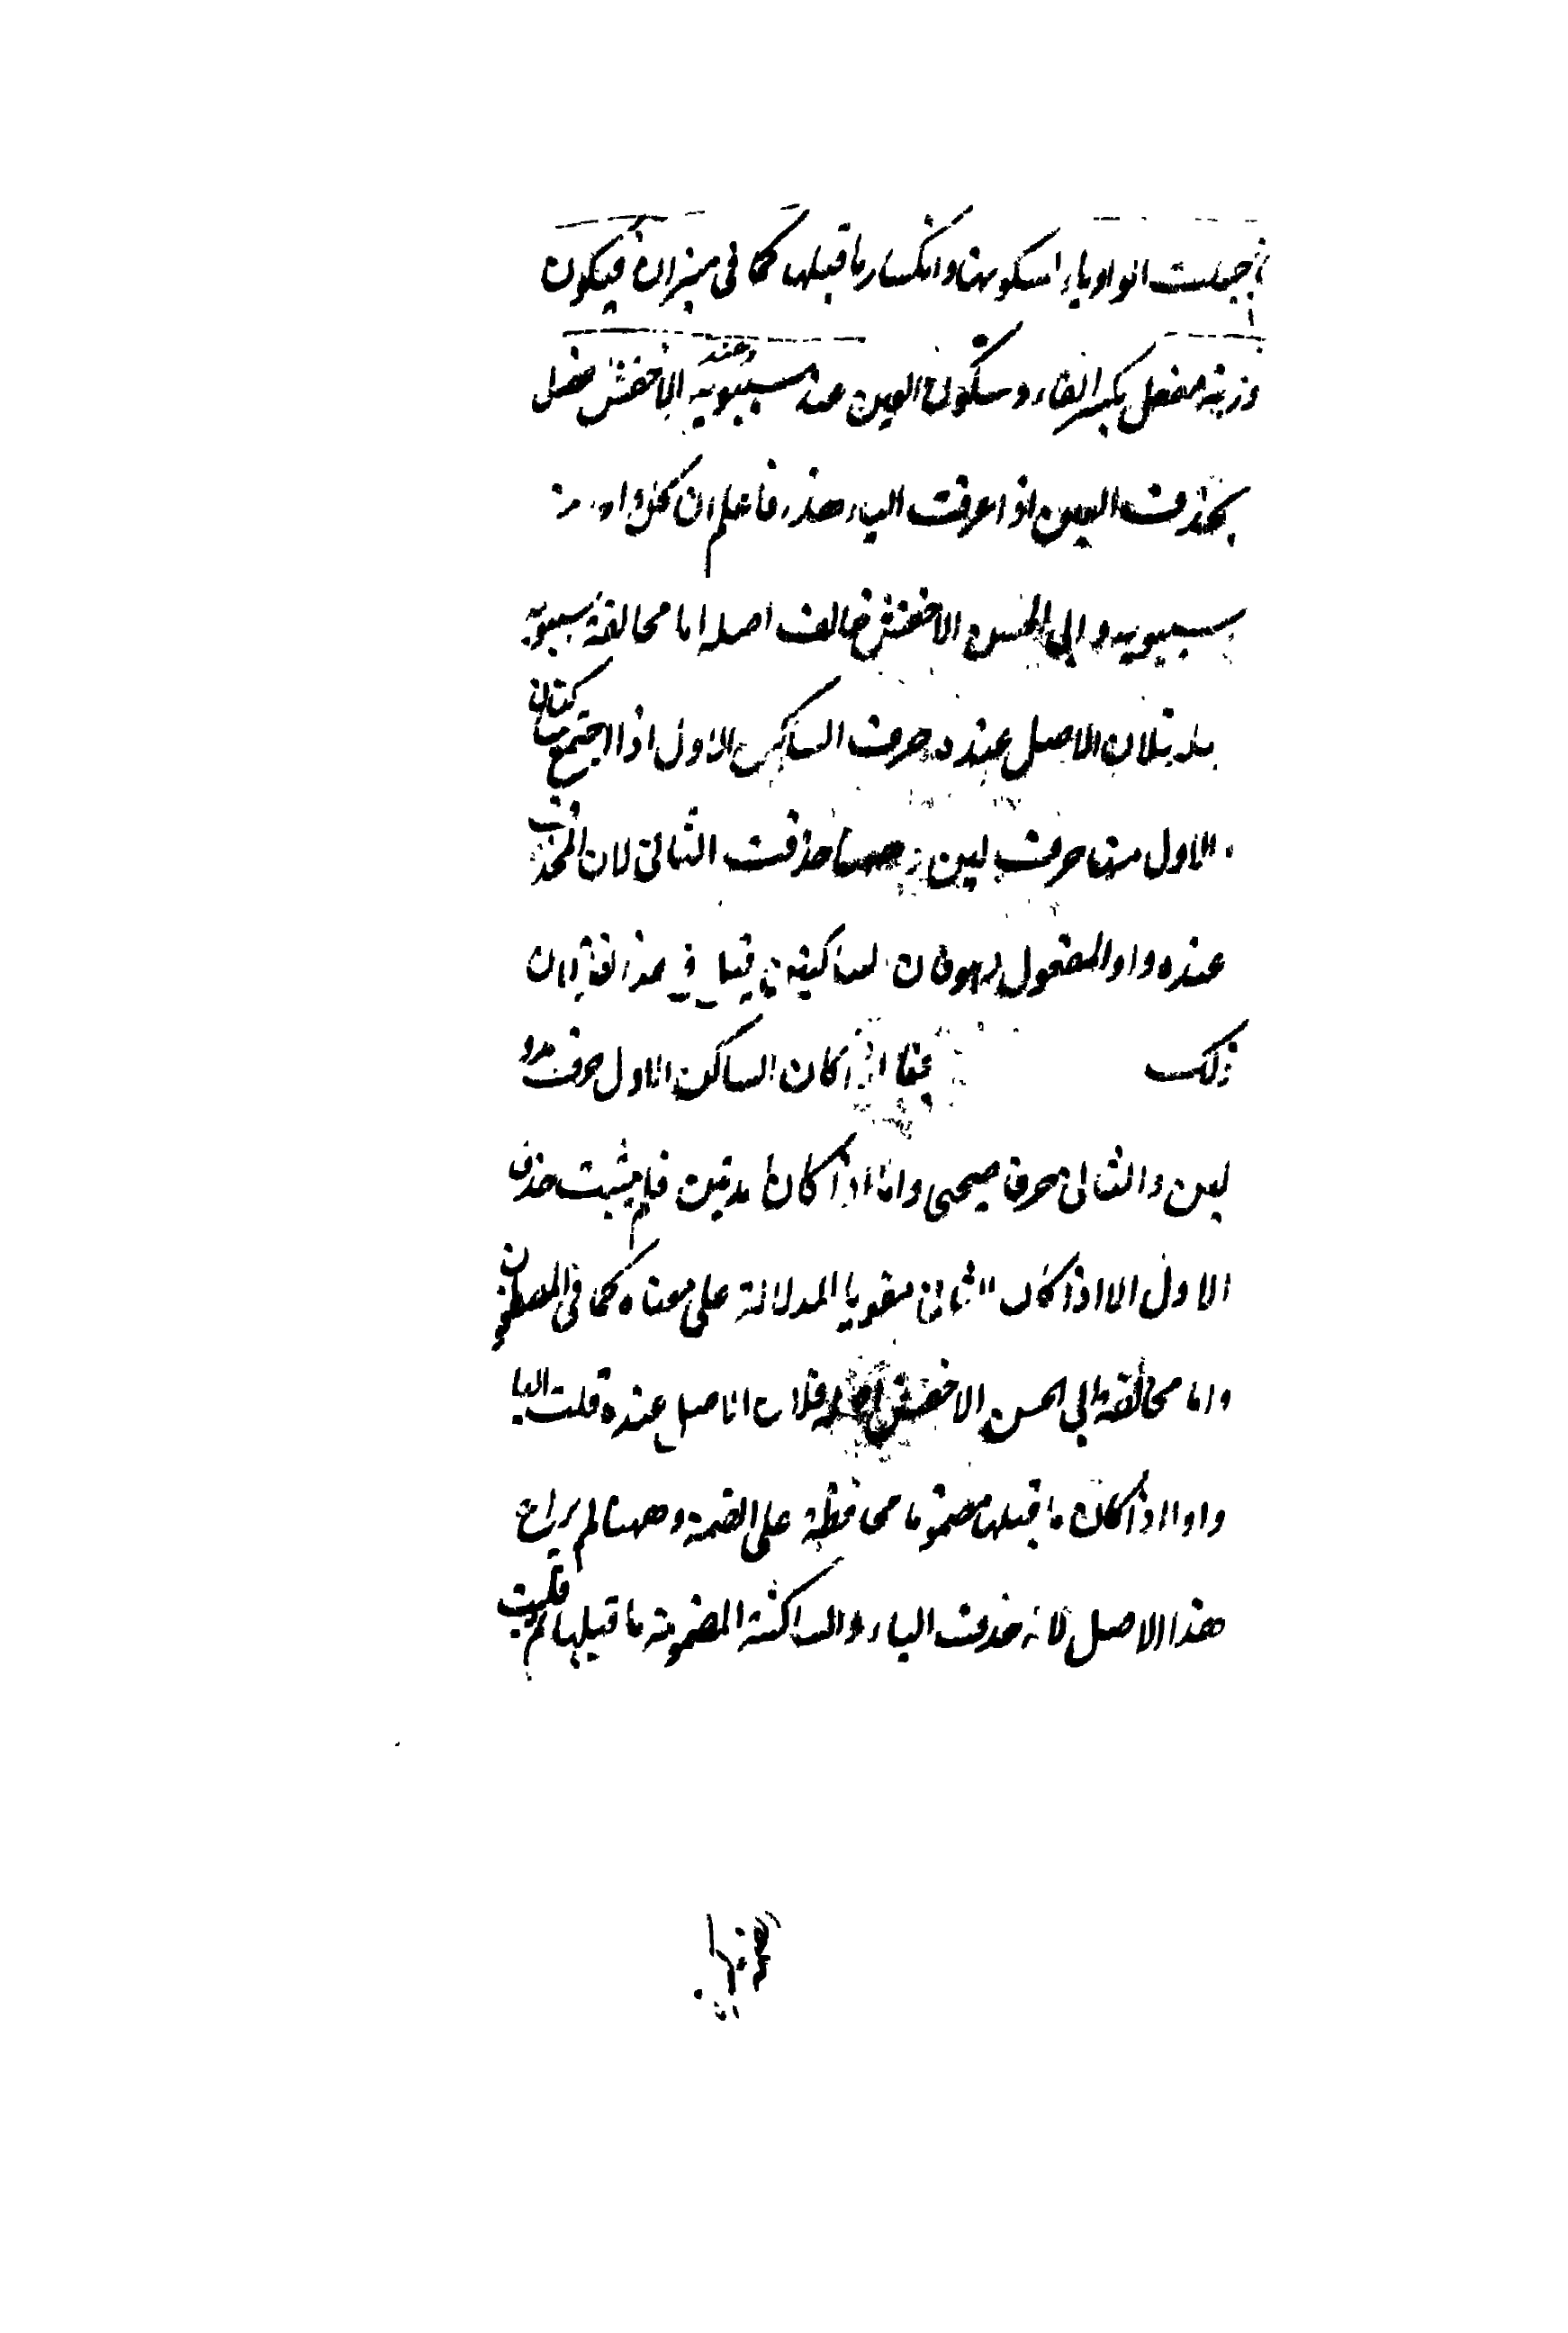 جعلت الواو ياء لسكونها وانكسار ما قبلها كما في ميزان فيكون
وزنه مفعل بكسر الفاء وسكون العين عند سيبويه وعند الاخفش مفيل
بحذف العين اذا عرفت هذا فاعلم ان كل واحد من
سيبويه وابي الحسن الاخفش خالف اصله اما مخالفة سيبويه
فلان الاصل عنده حذف الساكن الاول اذا اجتمع ساكنان
الاول منها حرف لين وههنا حذفت الثاني لان المحذوف
عنده واو المفعول وهو ثاني الساكنين
ذلك اذا كان الساكن الاول حرف مد و
لين والثاني حرفا صحيحا واما اذا كانا مدتين فلم يثبت حذف
الاول الا اذا كان الثاني مقويا للدلالة على معناه كما في المصطفون
واما مخالفة ابي الحسن الاخفش اصله فلان الاصل عنده قلب اليا
واوا اذا كان ما قبلها مضموما محافظة على الضمة وههنا لم يراع
هذا الاصل لانه حذفت الياء والساكنة المضمومة ما قبلها لم قلبت